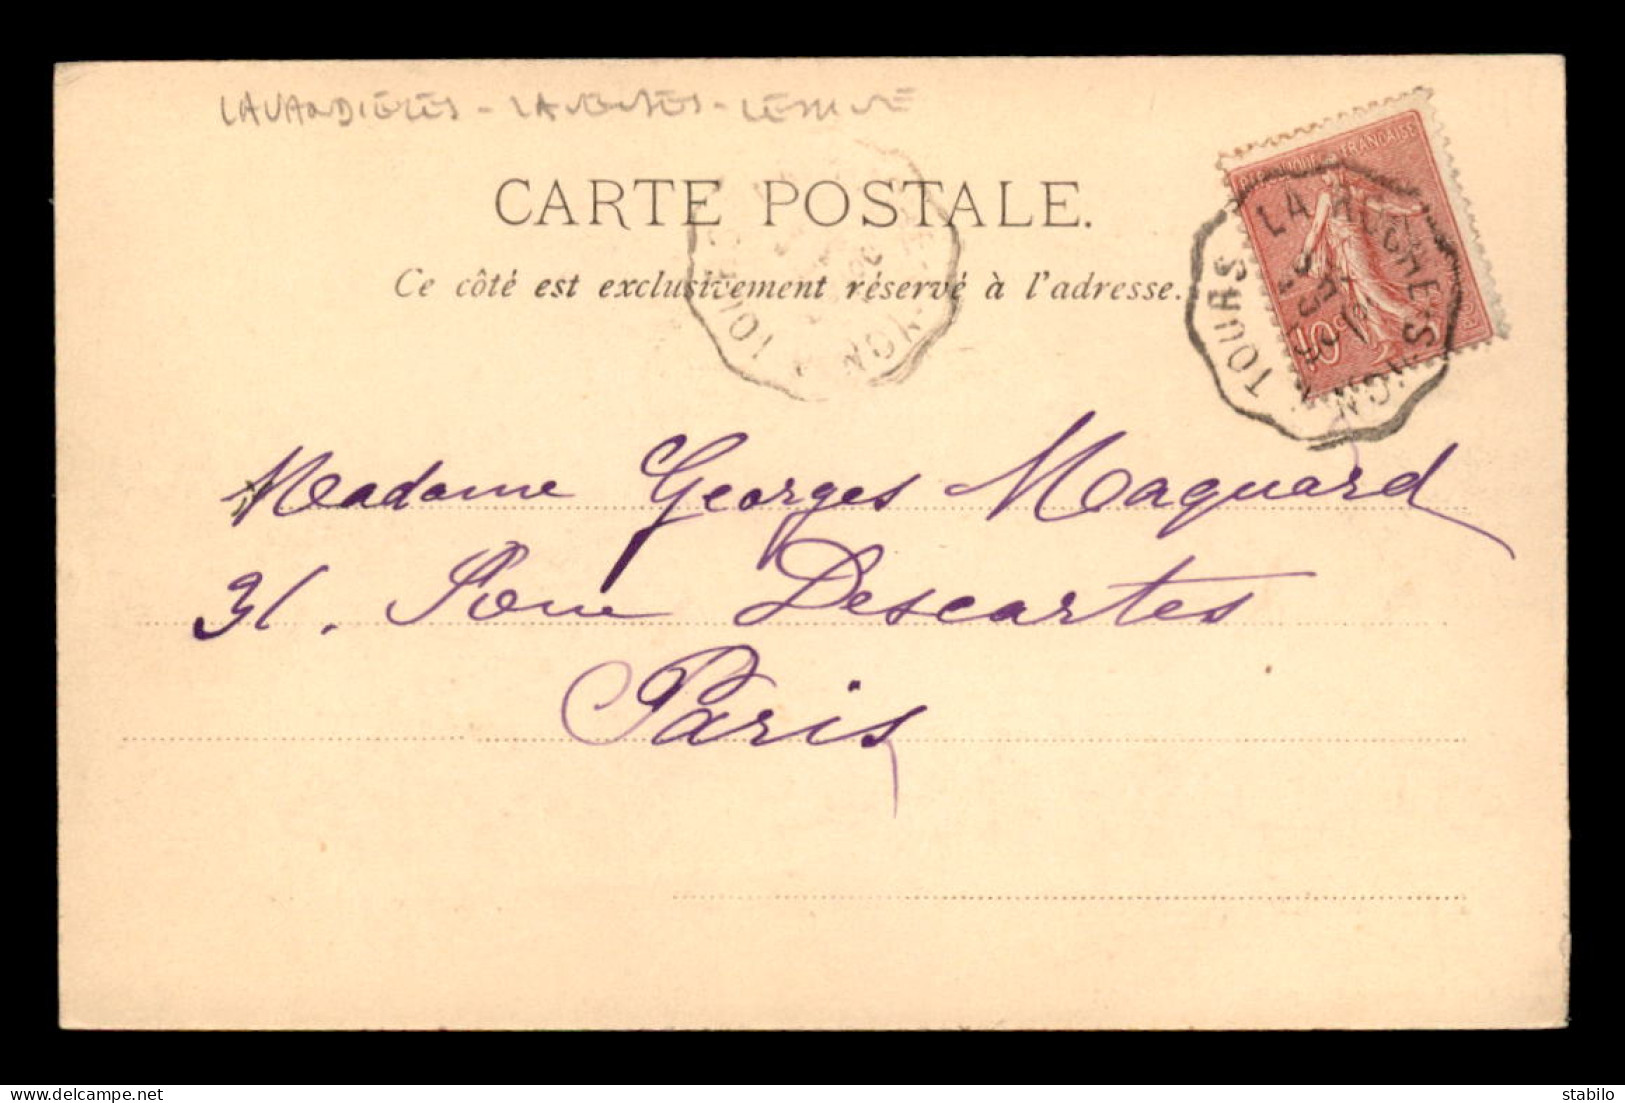 LAVANDIÈRES - LAVEUSES - LESSIVE
CARTE POSTALE.
Ce côté est exclusivement réservé à l'adresse.
RÉPUBLIQUE FRANÇAISE
10c
LA ROCHE-S-YON
TOURS
TOUR
YON
Madame Georges Maquard
31. Rue Descartes
Paris
stabilo